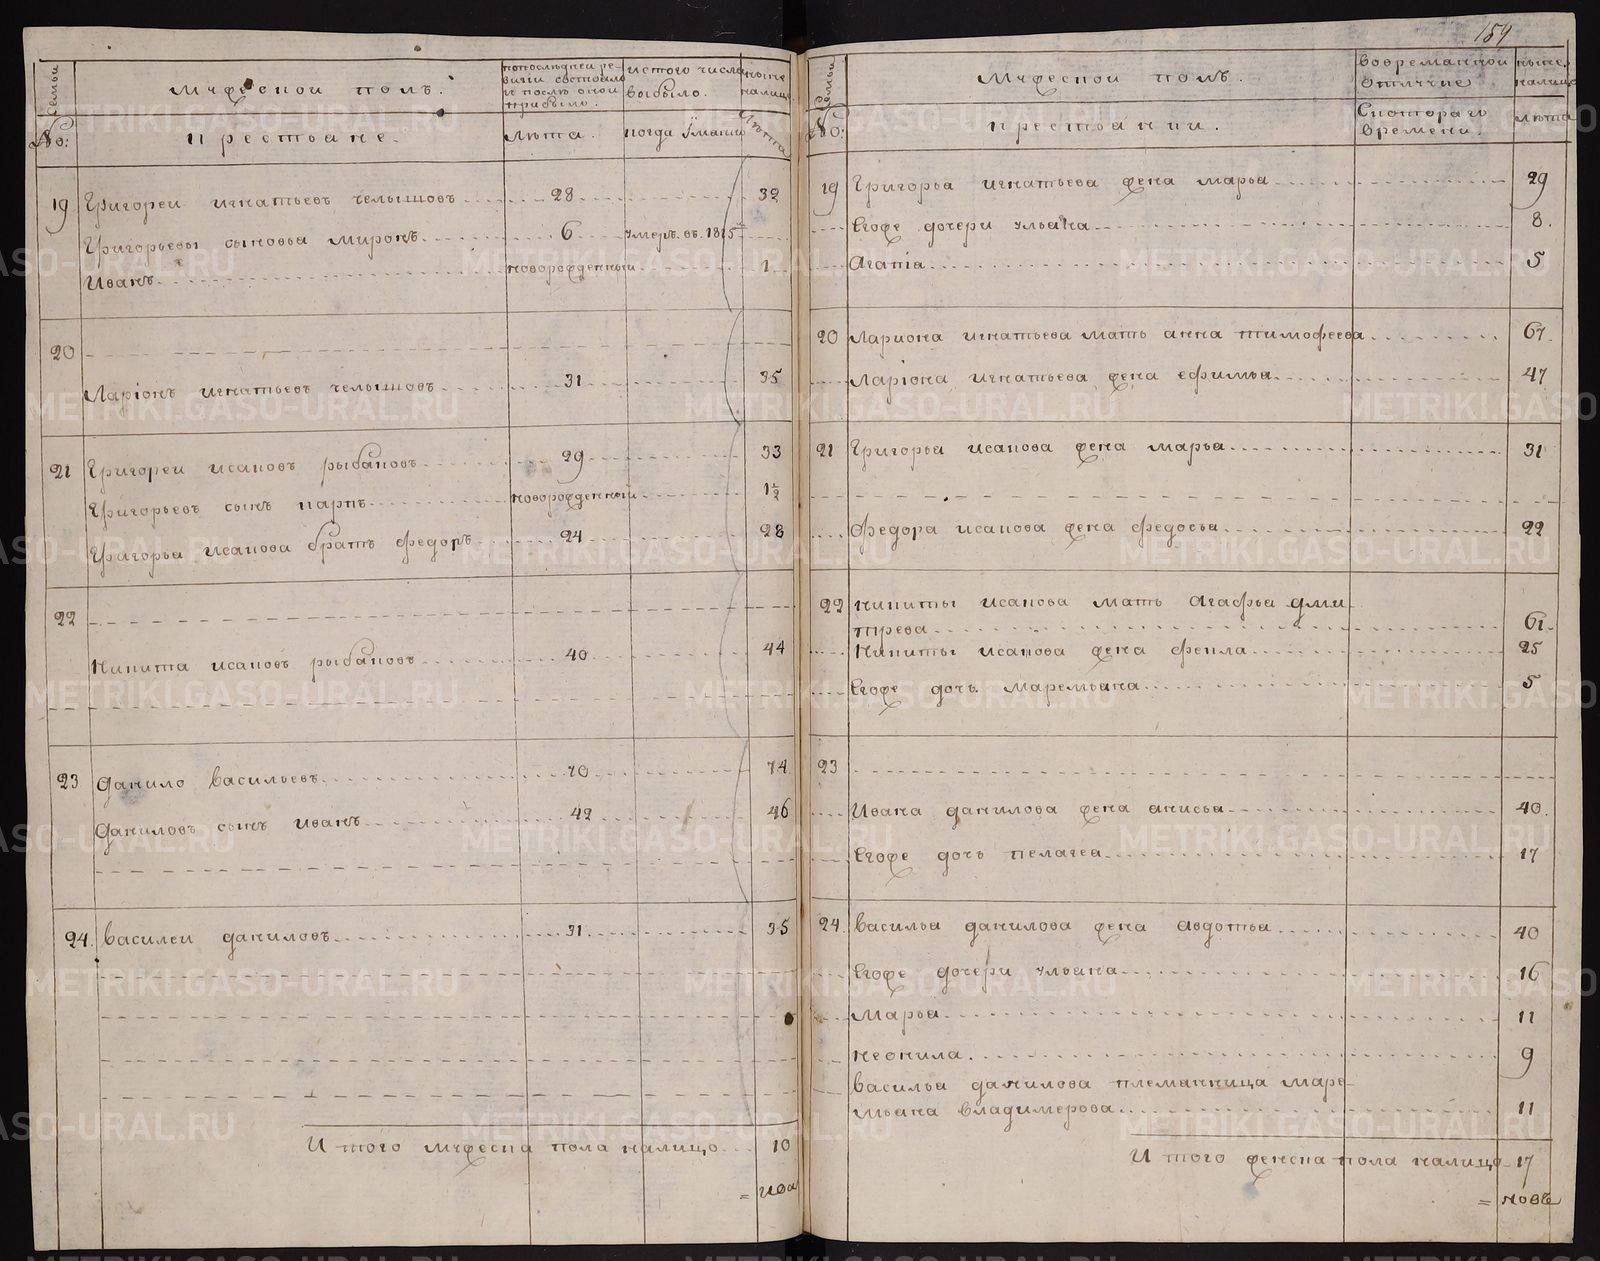 159
семьи
№:
мужеской полъ.
крестьяне.
попоследней ре-
визии состояло
и послѣ оной
прибыло.
лѣта.
истого числа
выбыло.
когда имянно
ныне
налицо
лѣта
19 Григореи игнатьевъ челышовъ 28 32
Григорьевы сыновья миронъ 6 умеръ въ 1815
Иванъ новорожденныи 1
20
Ларионъ игнатьевъ челышовъ 31 35
21 Григореи исаковъ рыбаковъ 29 33
Григорьевъ сынъ карпъ новорожденныи 1½
Григорья исакова братъ федоръ 24 28
22
Никита исаковъ рыбаковъ 40 44
23 Данило васильевъ 70 74
Даниловъ сынъ иванъ 42 46
24. василеи даниловъ 31 35
И того мужеска пола налицо 10
семьи
№:
мужескои полъ.
крестьянки.
вовременной
отлучке
скотораго
времени.
ныне
налицо
лѣта
19 Григорья игнатьева жена марья 29
Егоже дочери ульяна 8.
Агапіа 5
20 Лариона игнатьева мать анна тимофеева 67.
Ларіона игнатьева жена ефимья 47
21 Григорья исакова жена марья 31
федора исакова жена федосья 22
22 никиты исакова мать агафья дми
трева 61
Никиты исакова жена фекла 25
Егоже дочь маремьяна 5
23
Ивана данилова жена анисья 40.
Егоже дочь пелагея 17
24. васильа данилова жена авдотья 40
Егоже дочери ульяна 16
Марья 11
неонила 9
васильа данилова племянница маре-
мьяна владимерова 11
И того женска пола налицо 17
METRIKI.GASO-URAL.RU